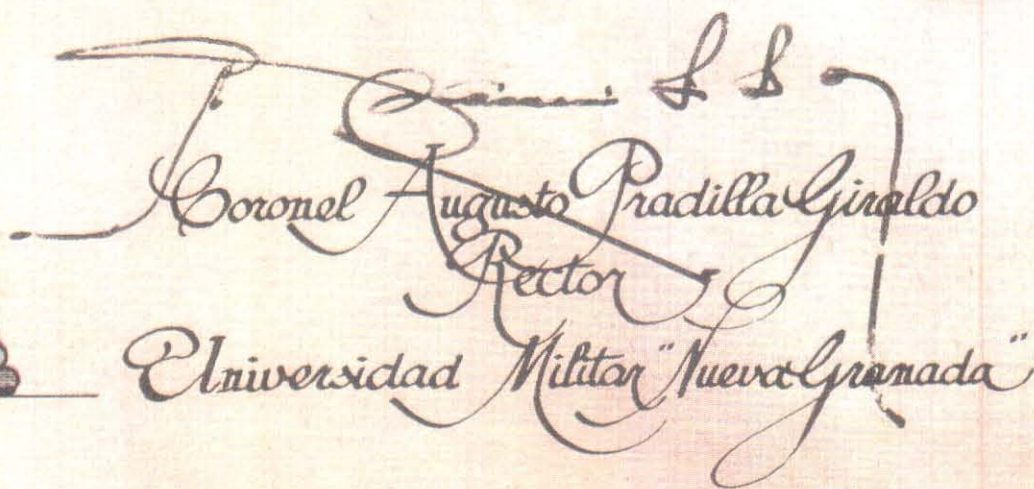 Coronel Augusto Pradilla Giraldo
Rector
Universidad Militar "Nueva Granada"